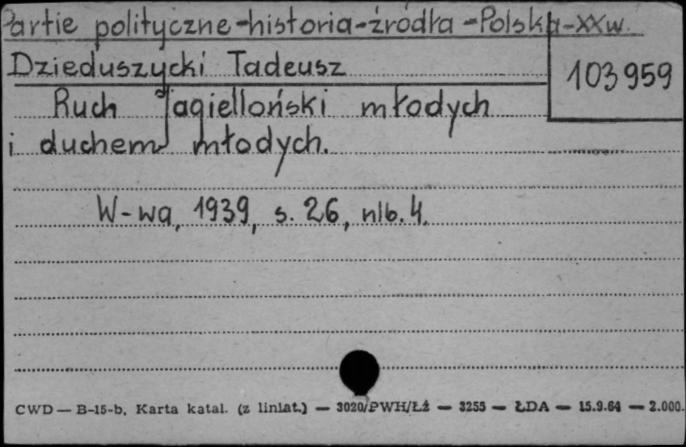 Partie polityczne-historia-źródła-Polska-XXw.
Dzieduszycki Tadeusz
103959
Ruch Jagielloński młodych
i duchem młodych.
W-wa, 1939, s. 26, nlb. 4.
CWD — B-15-b. Karta katal. (z liniat.) — 3020/PWH/Łż — 3255 — ŁDA — 15.9.64 — 2.000.